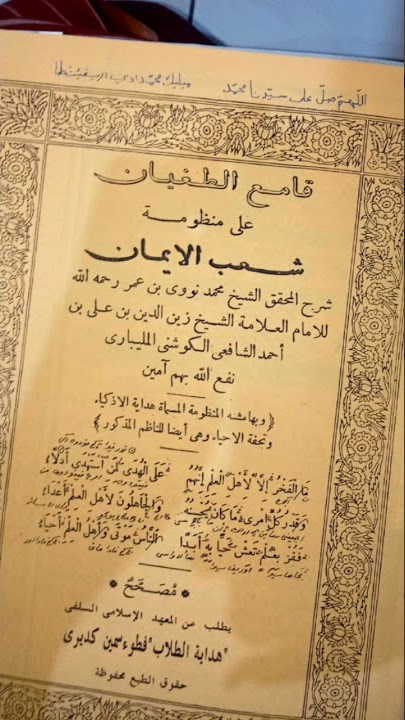 اللهم صل على سيدنا محمد
ميليك محمد
قامع الطغيان
على منظومة
شعب الايمان
شرح المحقق الشيخ محمد نووى بن عمر رحمه الله
للامام العلامة الشيخ زين الدين بن على بن
أحمد الشافعى الكوشنى المليبارى
نفع الله بهم آمين
﴿ وبهامشه المنظومة المسماة هداية الاذكياء
وتحفة الاحباء وهى أيضا للناظم المذكور ﴾
مَا الْفَخْرُ إِلَّا لِأَهْلِ الْعِلْمِ إِنَّهُمْ عَلَى الْهُدَى لِمَنِ اسْتَهْدَى أَدِلَّاءُ
وَقَدْرُ كُلِّ امْرِئٍ مَا كَانَ يُحْسِنُهُ وَالْجَاهِلُونَ لِأَهْلِ الْعِلْمِ أَعْدَاءُ
فَفُزْ بِعِلْمٍ تَعِشْ حَيًّا بِهِ أَبَدًا النَّاسُ مَوْتَى وَأَهْلُ الْعِلْمِ أَحْيَاءُ
* مُصَحَّحٌ *
يطلب من المعهد الاسلامى السلفى
"هداية الطلاب" فطوء سمين كديرى
حقوق الطبع محفوظة